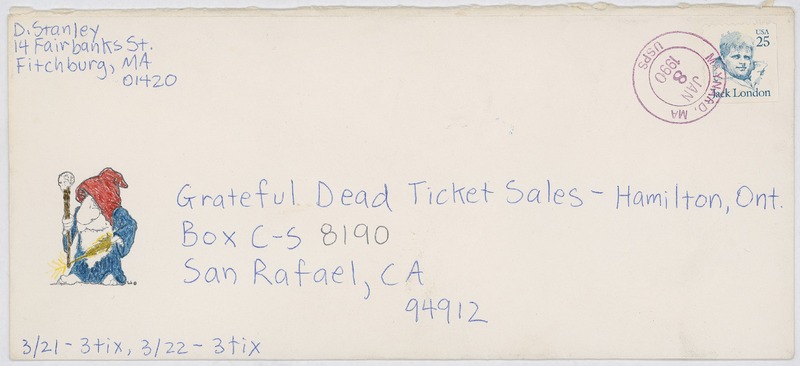 D. Stanley
14 Fairbanks St.
Fitchburg, MA
01420
MAYNARD, MA
JAN
8
1990
USPS
USA
25
Jack London
Grateful Dead Ticket Sales - Hamilton, Ont.
Box C-S 8190
San Rafael, CA
94912
3/21 - 3 tix, 3/22 - 3 tix